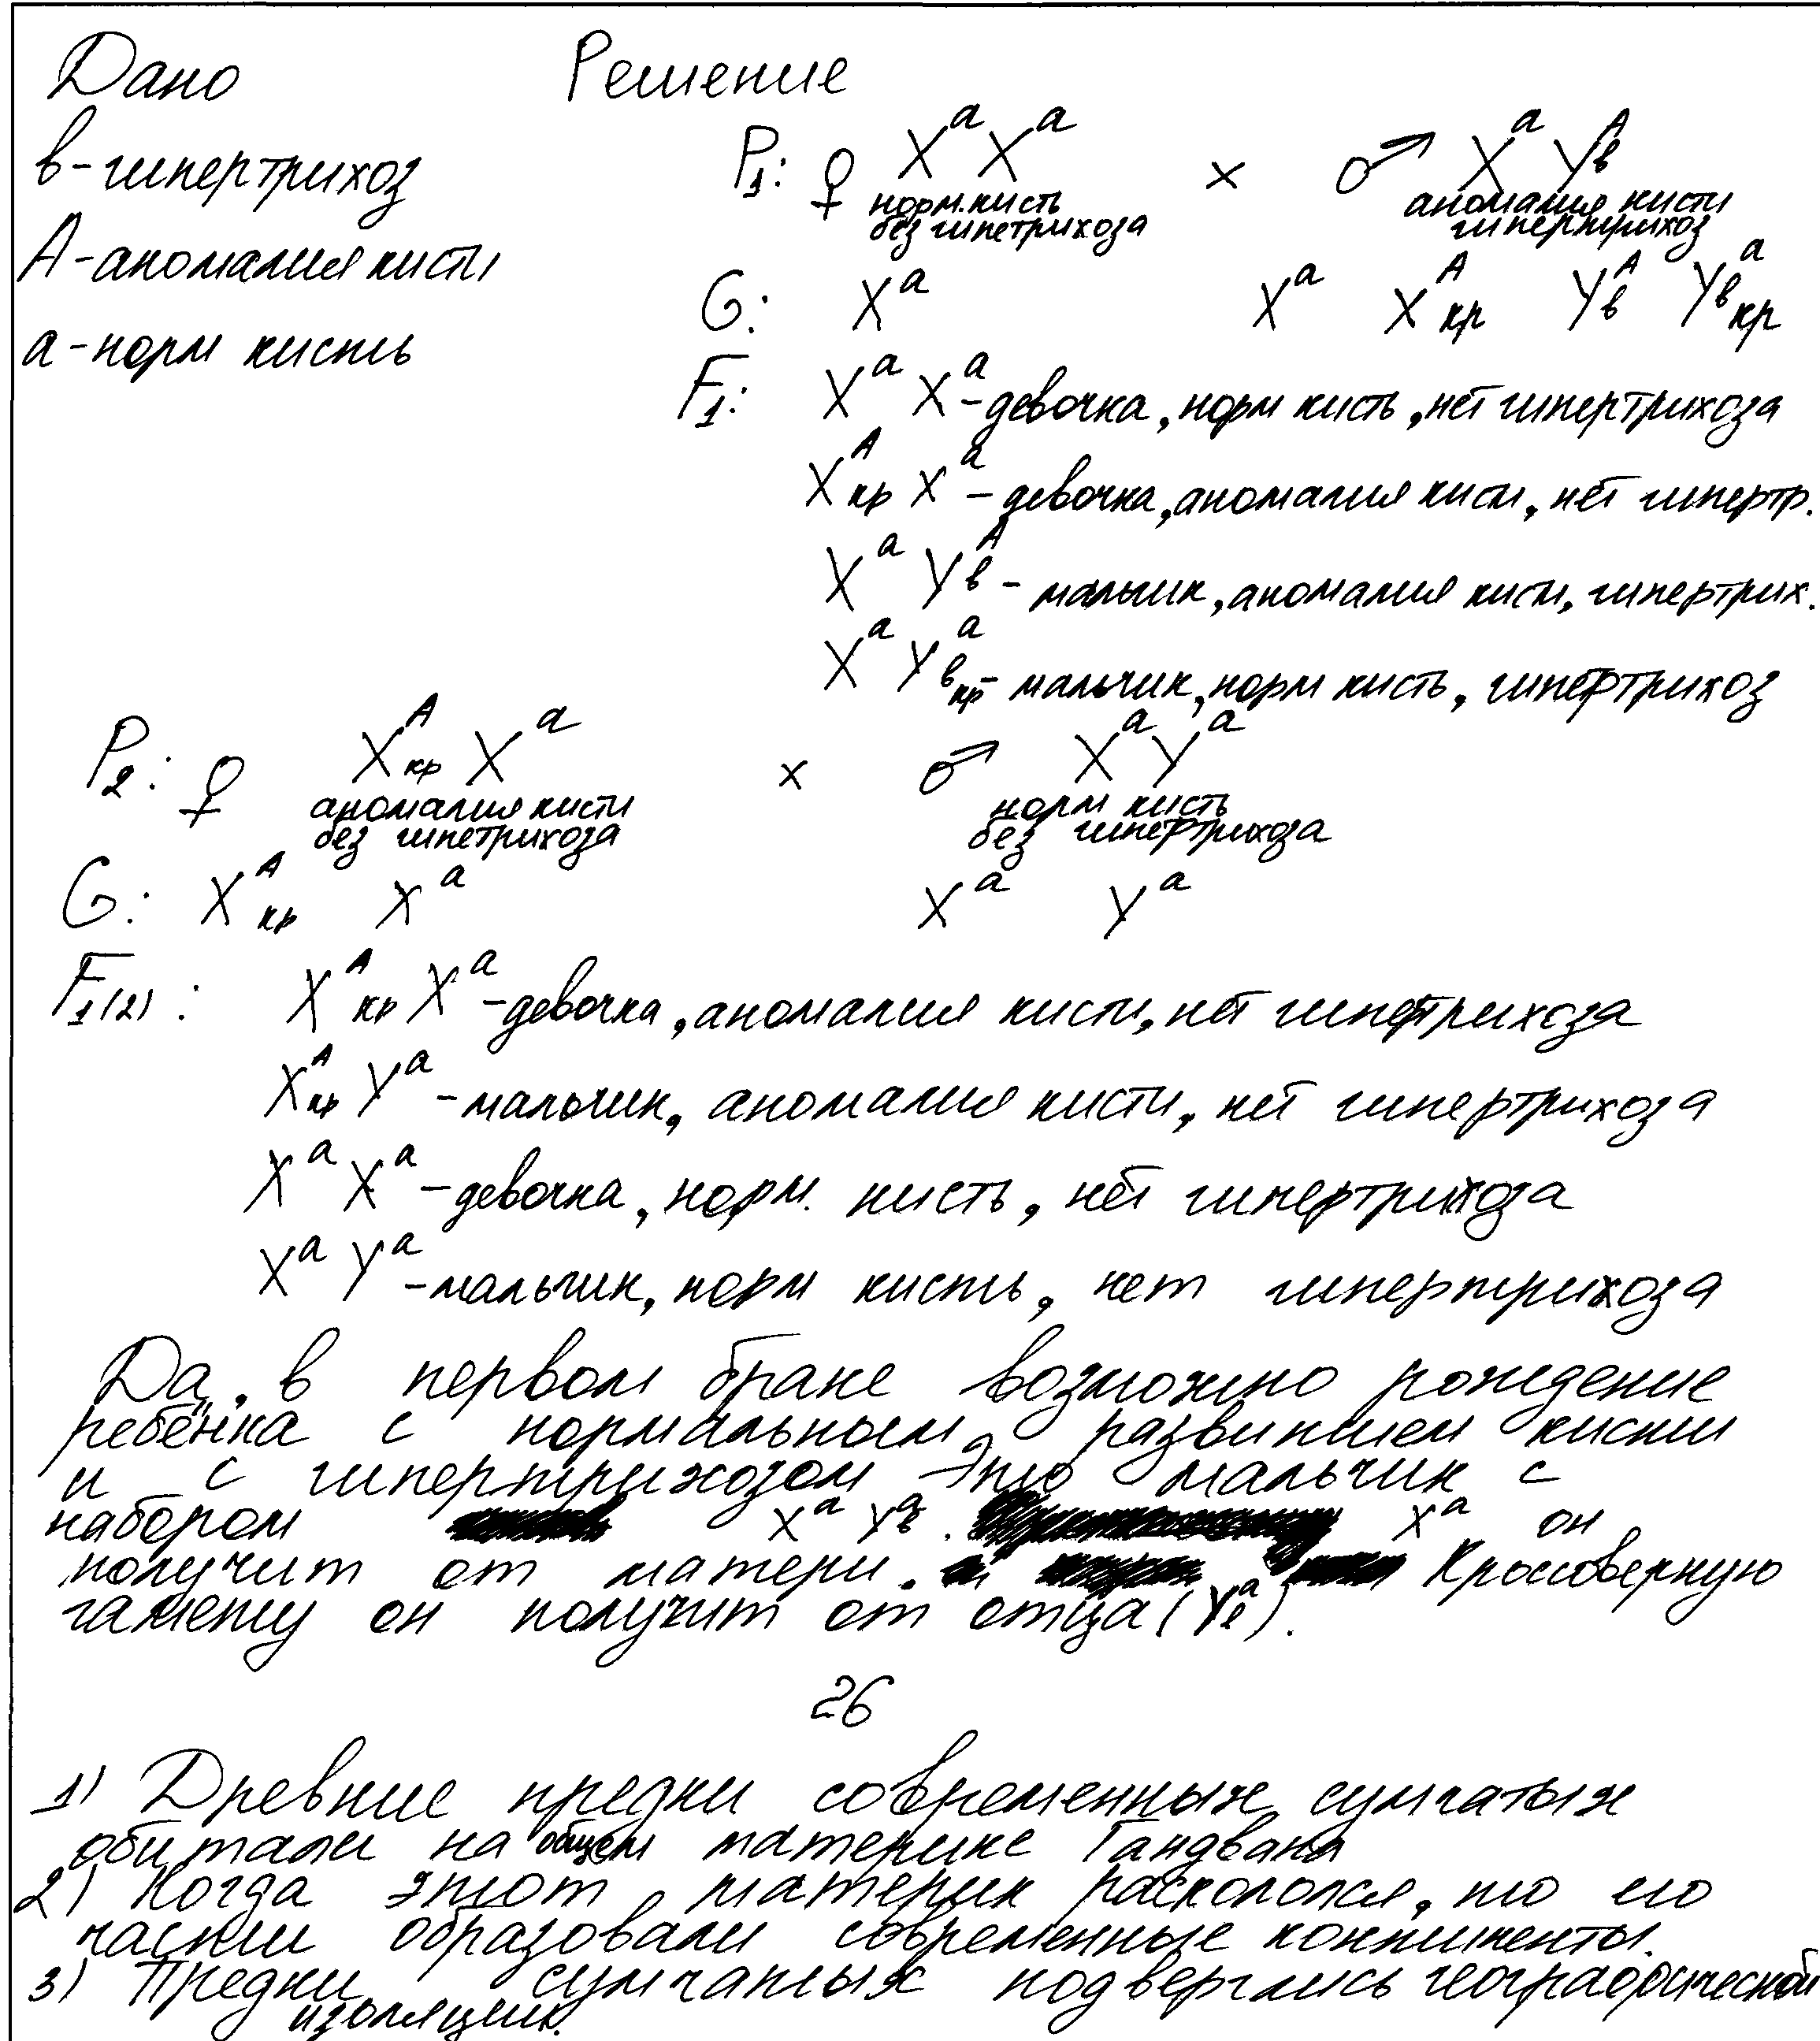 Дано Решение
в-гипертрихоз P₁: ♀ XᵃXᵃ × ♂ XᵃYвᴬ
норм.кисть без гипетрихоза аномалия кисти гипертрихоз
А-аномалия кисти
G: Xᵃ Xᵃ Xᴬкр Yвᴬ Yвᵃкр
а-норм кисть
F₁: XᵃXᵃ-девочка, норм кисть, нет гипертрихоза
XᴬкрXᵃ-девочка, аномалия кисти, нет гипертр.
XᵃYвᴬ-мальчик, аномалия кисти, гипертрих.
XᵃYвᵃкр-мальчик, норм кисть, гипертрихоз
P₂: ♀ XᴬкрXᵃ × ♂ XᵃYᵃ
аномалия кисти норм кисть
без гипетрихоза без гипертрихоза
G: Xᴬкр Xᵃ Xᵃ Yᵃ
F₁₍₂₎: XᴬкрXᵃ-девочка, аномалия кисти, нет гипертрихоза
XᴬкрYᵃ-мальчик, аномалия кисти, нет гипертрихоза
XᵃXᵃ-девочка, норм. кисть, нет гипертрихоза
XᵃYᵃ-мальчик, норм кисть, нет гипертрихоза
Да, в первом браке возможно рождение
ребёнка с нормальным развитием кисти
и с гипертрихозом Это мальчик с
набором XᵃYвᵃ. Xᵃ он
получит от матери. Кроссоверную
гамету он получит от отца (Yвᵃ).
26
1) Древние предки современных сумчатых
обитали на общем материке Гандвана
2) Когда этот материк раскололся, то его
части образовали современные континенты.
3) Предки сумчатых подверглись географической
изоляции.